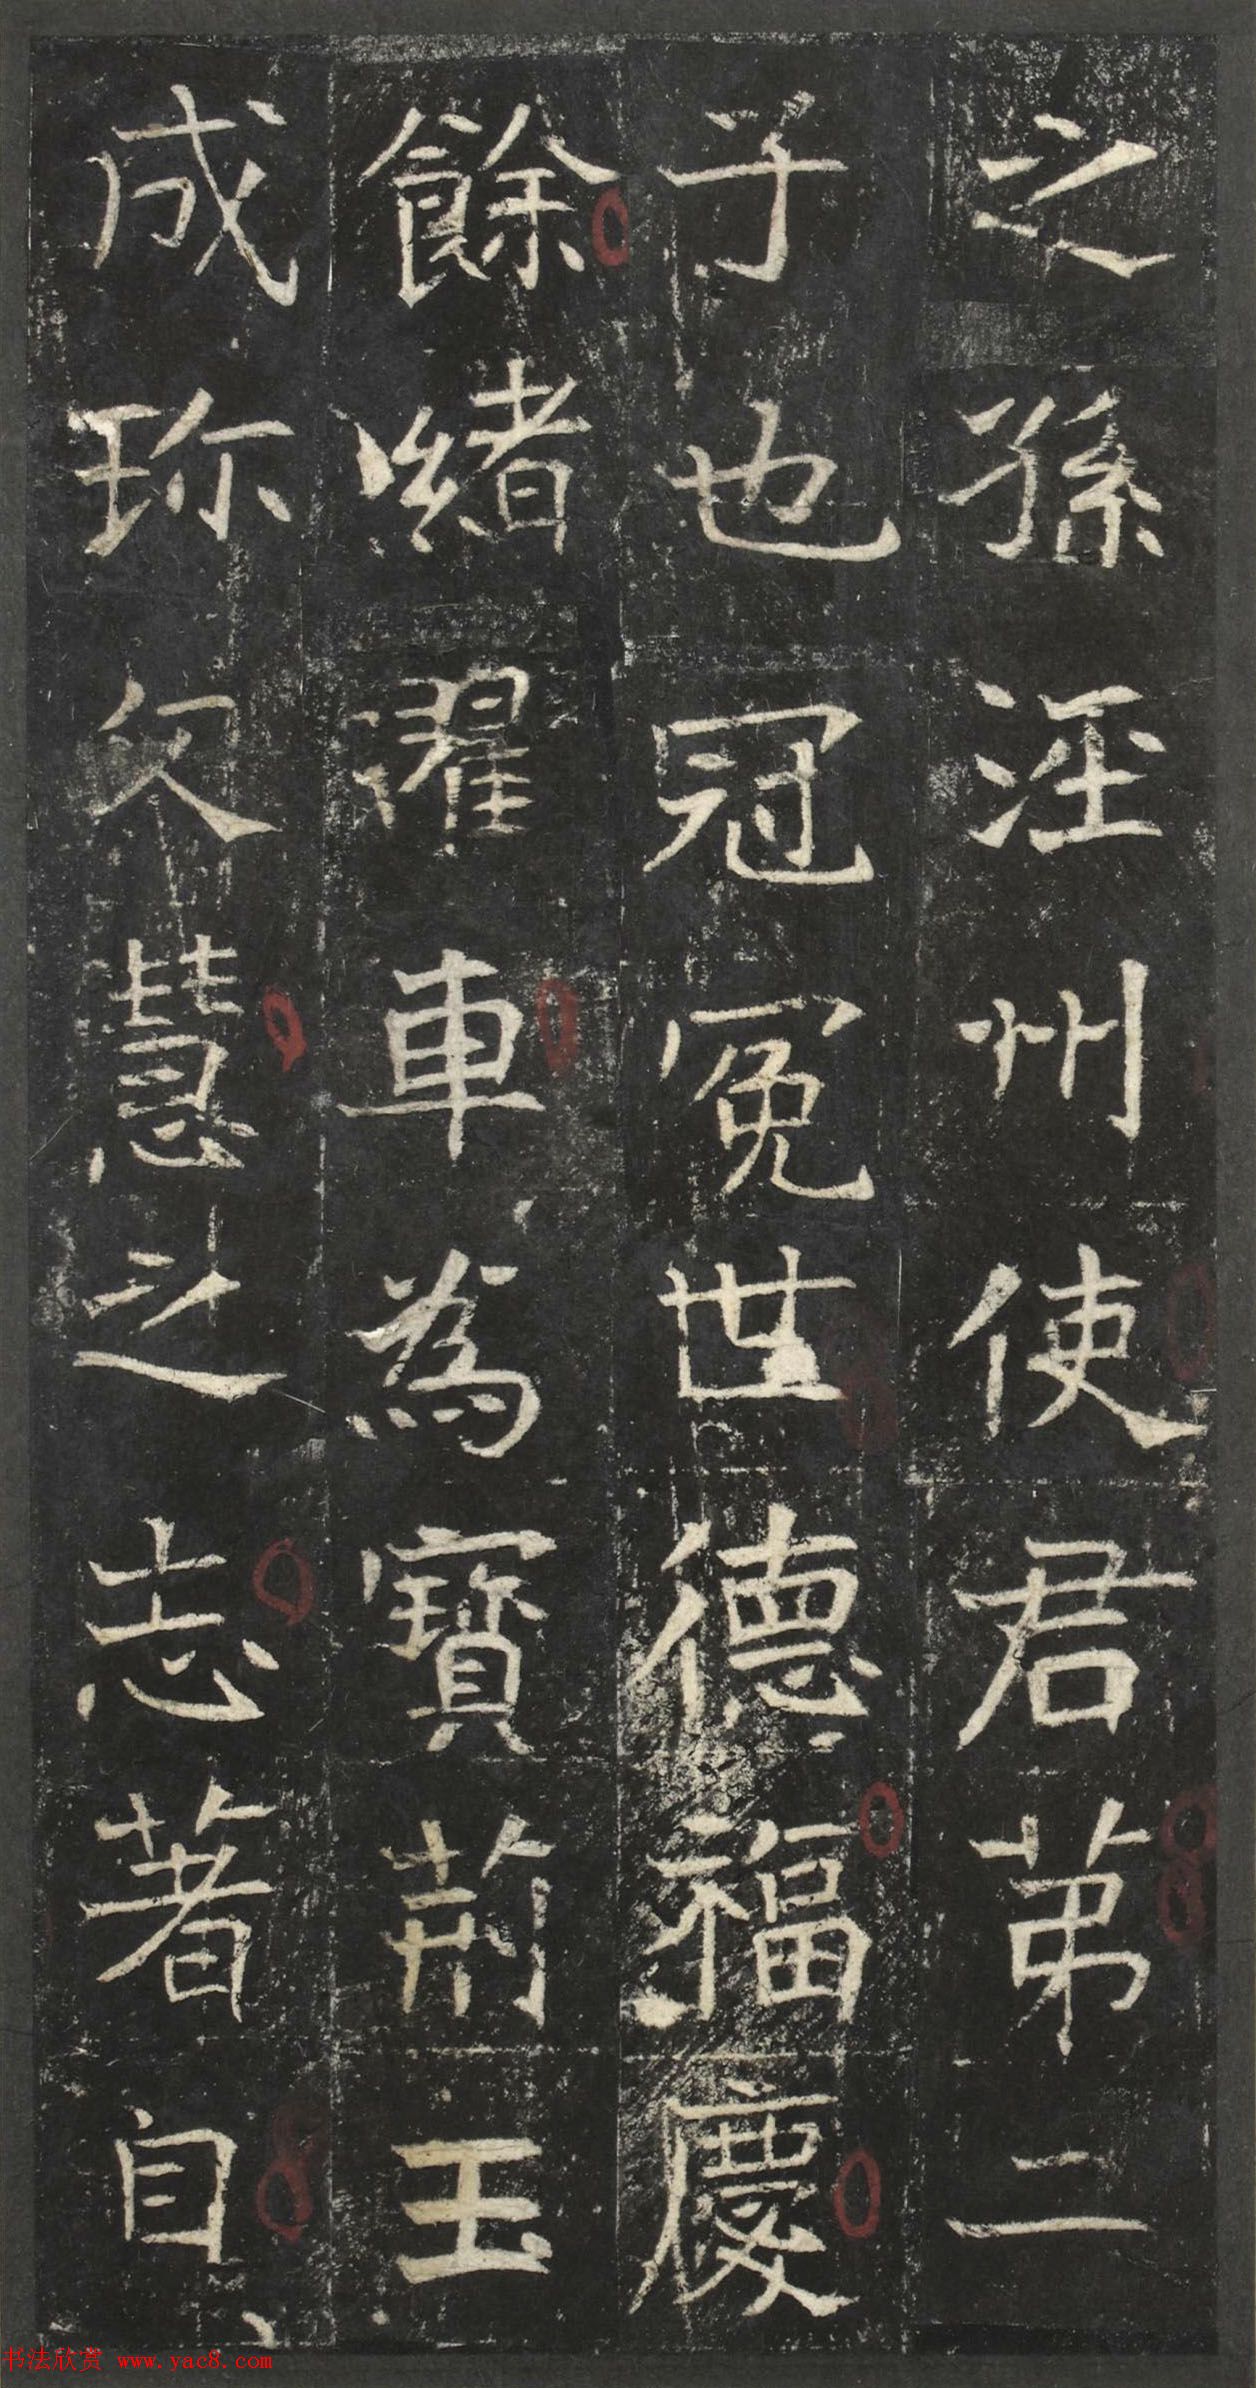 之孫涇州使君苐二
子也冠冕世德福慶
餘緒濯車為寶荊玉
成珍久慧之志著自
书法欣赏 www.yac8.com